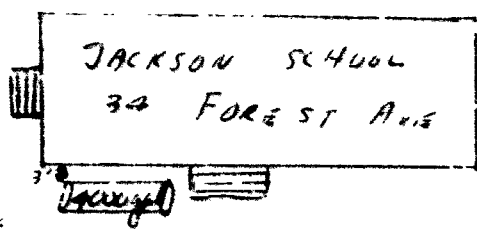 JACKSON SCHOOL
34 FOREST AVE
3'